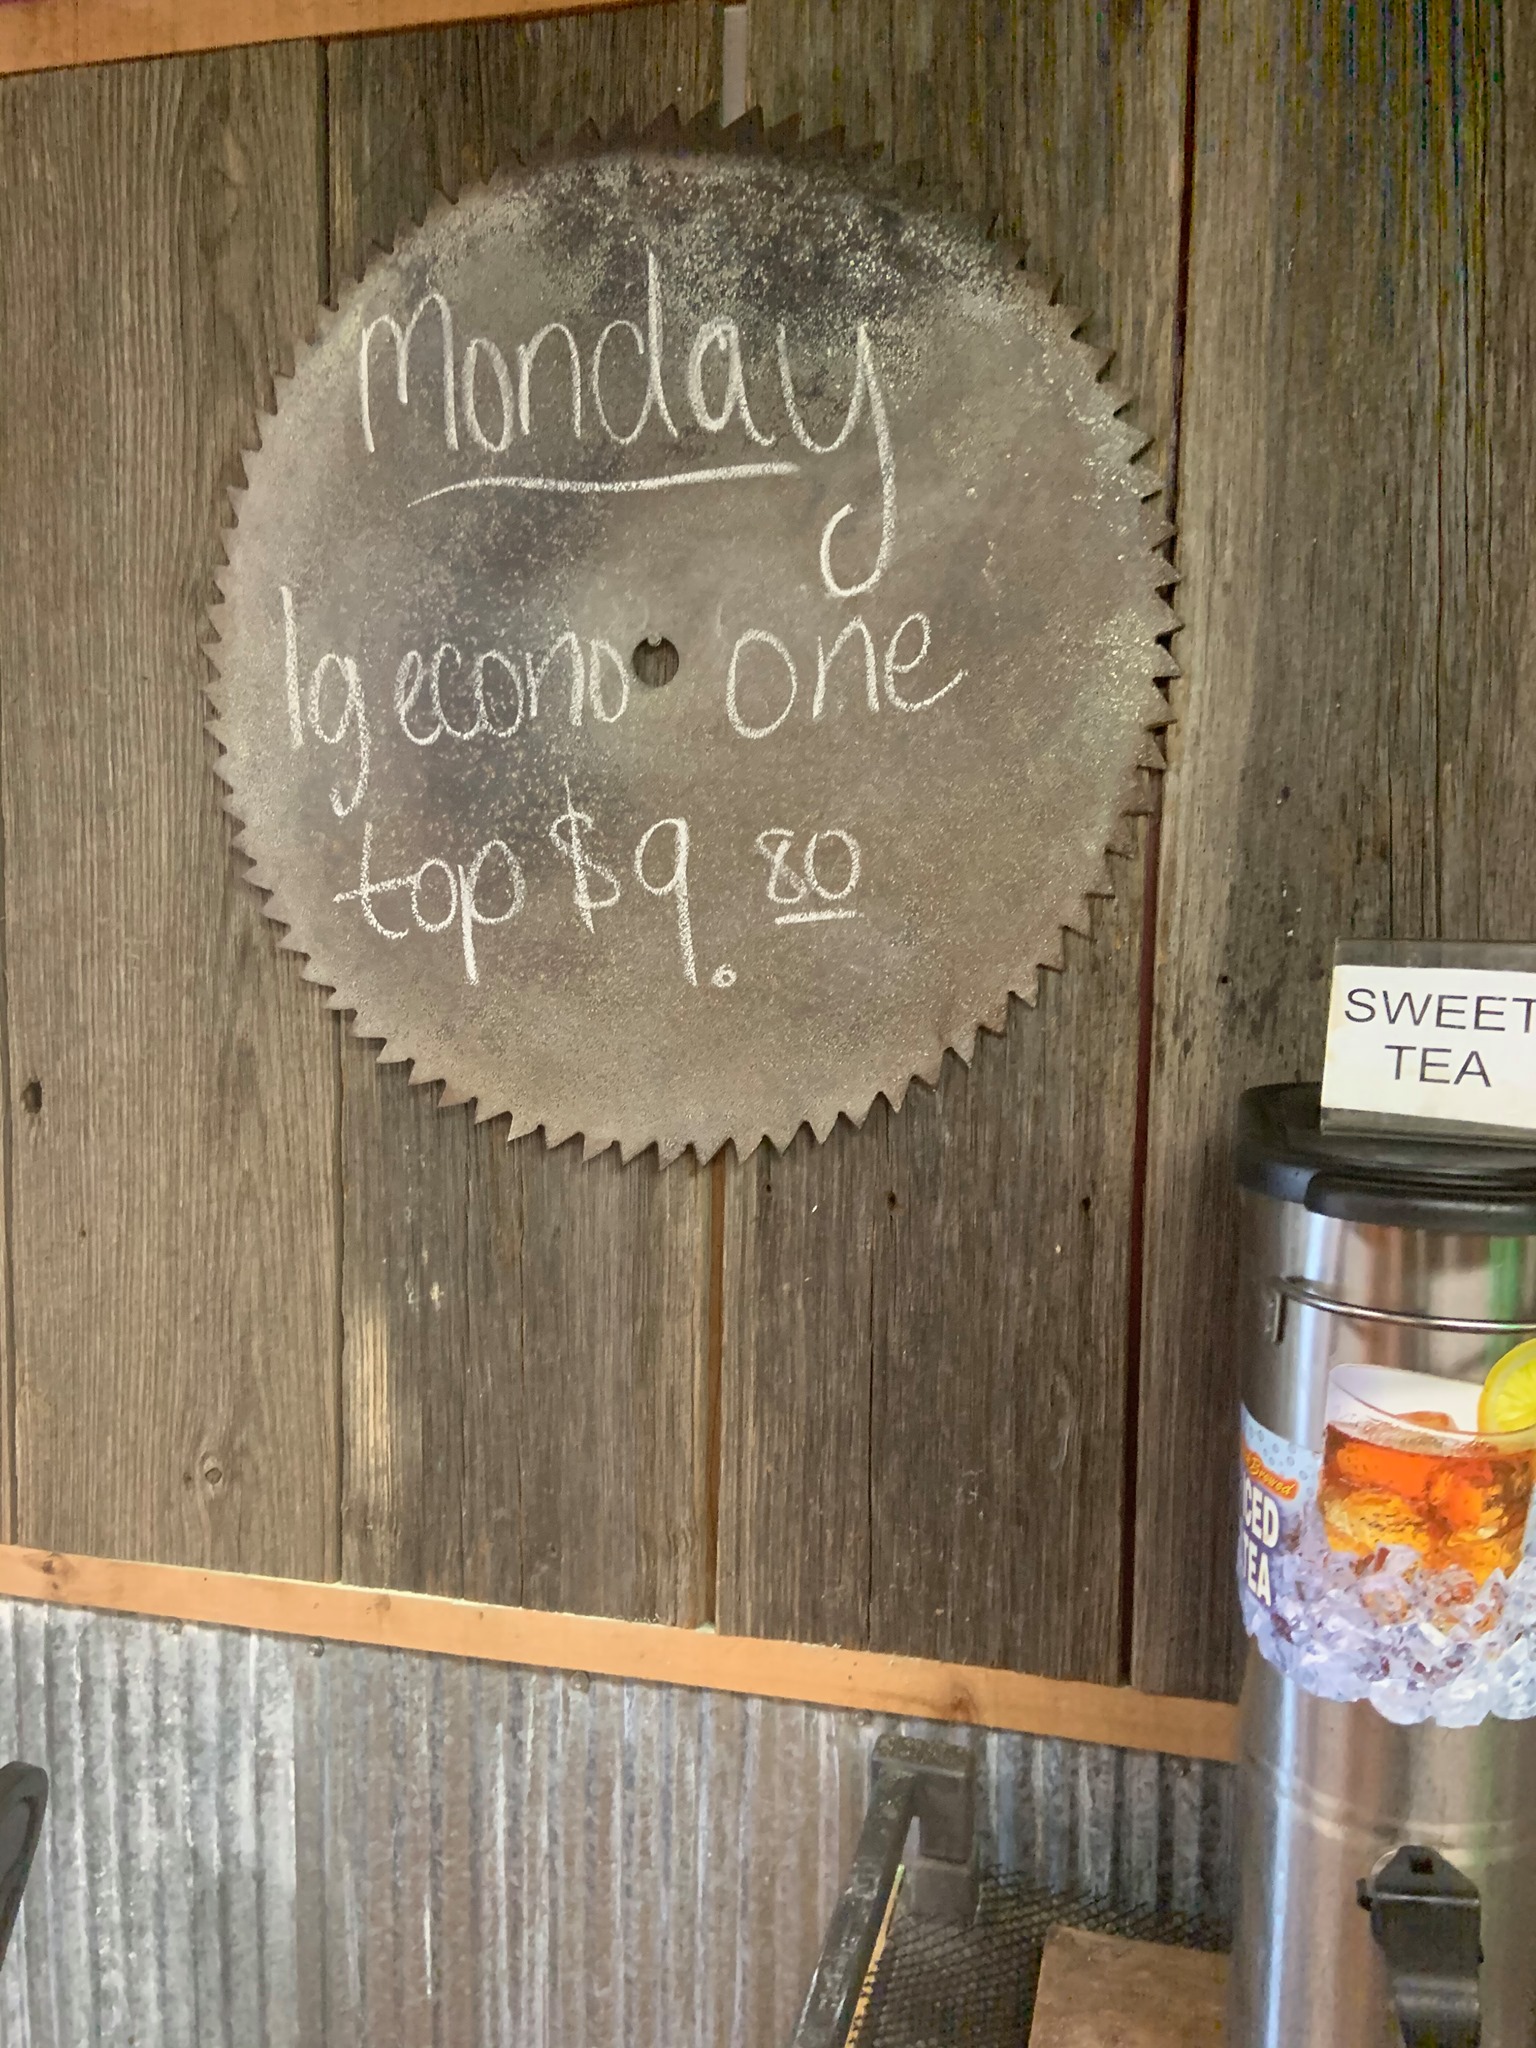 Monday
lg econo one
top $9.80
SWEET
TEA
Brewed
ICED
TEA